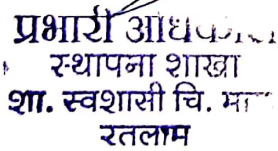 प्रभारी अधिकारी
स्थापना शाखा
शा. स्वशासी चि. महा
रतलाम